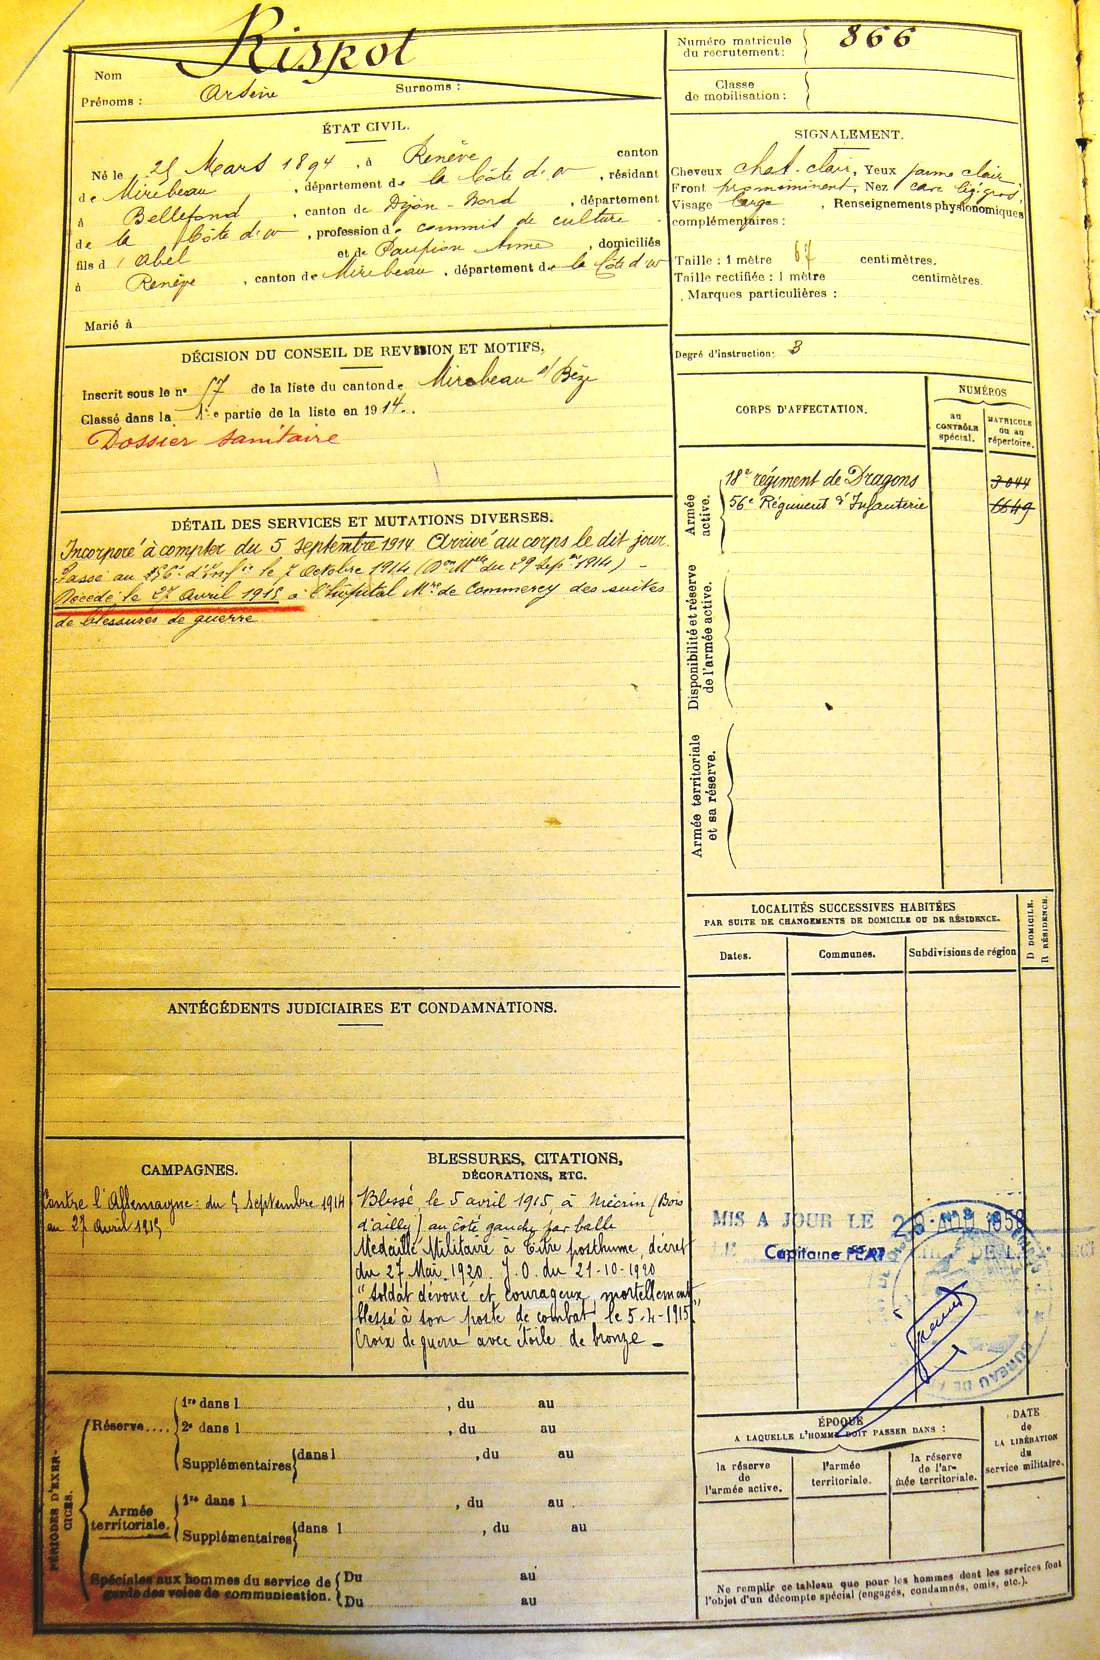 Rispot
Nom
Prénoms : Arsène Surnoms :
Numéro matricule du recrutement : 866
Classe de mobilisation :
ÉTAT CIVIL.
Né le 25 Mars 1894, à Renève canton
de Mirebeau, département de la Côte d'or, résidant
à Bellefond, canton de Dijon-Nord, département
de la Côte d'or, profession de commis de culture
fils d'Abel et de Paupion Anne, domiciliés
à Renève, canton de Mirebeau, département de la Côte d'or
Marié à
SIGNALEMENT.
Cheveux chat. clair, Yeux jaune clair
Front prominent, Nez cave
Visage large, Renseignements physionomiques
complémentaires :
Taille : 1 mètre 67 centimètres.
Taille rectifiée : 1 mètre centimètres.
Marques particulières :
Degré d'instruction : 3
DÉCISION DU CONSEIL DE REVISION ET MOTIFS.
Inscrit sous le n° 17 de la liste du canton de Mirebeau s/ Bèze
Classé dans la 1re partie de la liste en 1914.
Dossier sanitaire
CORPS D'AFFECTATION.
NUMÉROS
au CONTRÔLE spécial.
MATRICULE ou au répertoire.
Armée active.
18e régiment de Dragons 3044
56e Régiment d'Infanterie 6649
Disponibilité et réserve de l'armée active.
Armée territoriale et sa réserve.
DÉTAIL DES SERVICES ET MUTATIONS DIVERSES.
Incorporé à compter du 5 septembre 1914 Arrivé au corps le dit jour.
Passé au 56e d'Inf ie le 7 Octobre 1914 (Don Mlle du 29 Sepbre 1914) -
Décédé le 27 Avril 1915 à l'hôpital Mre de Commercy des suites
de blessures de guerre
LOCALITÉS SUCCESSIVES HABITÉES
PAR SUITE DE CHANGEMENTS DE DOMICILE OU DE RÉSIDENCE.
Dates. Communes. Subdivisions de région
D DOMICILE.
R RÉSIDENCE.
ANTÉCÉDENTS JUDICIAIRES ET CONDAMNATIONS.
CAMPAGNES.
Contre l'Allemagne : du 5 Septembre 1914
au 27 Avril 1915
BLESSURES, CITATIONS,
DÉCORATIONS, ETC.
Blessé le 5 avril 1915, à Mécrin (Bois
d'ailly) au côté gauche par balle
Médaille Militaire à titre posthume, décret
du 27 Mai 1920. J.O. du 21-10-1920
"Soldat dévoué et courageux, mortellement
blessé à son poste de combat le 5-4-1915"
Croix de guerre avec étoile de bronze -
MIS A JOUR LE
Capitaine
BUREAU DE
PÉRIODES D'EXERCICES.
Réserve....
1re dans l , du au
2e dans l , du au
Supplémentaires dans l , du au
Armée territoriale.
1re dans l , du au
Supplémentaires dans l , du au
Spéciales aux hommes du service de garde des voies de communication.
Du au
Du au
ÉPOQUE
A LAQUELLE L'HOMME DOIT PASSER DANS :
la réserve de l'armée active.
l'armée territoriale.
la réserve de l'armée territoriale.
DATE de LA LIBÉRATION du service militaire.
Ne remplir ce tableau que pour les hommes dont les services font
l'objet d'un décompte spécial (engagés, condamnés, omis, etc.).